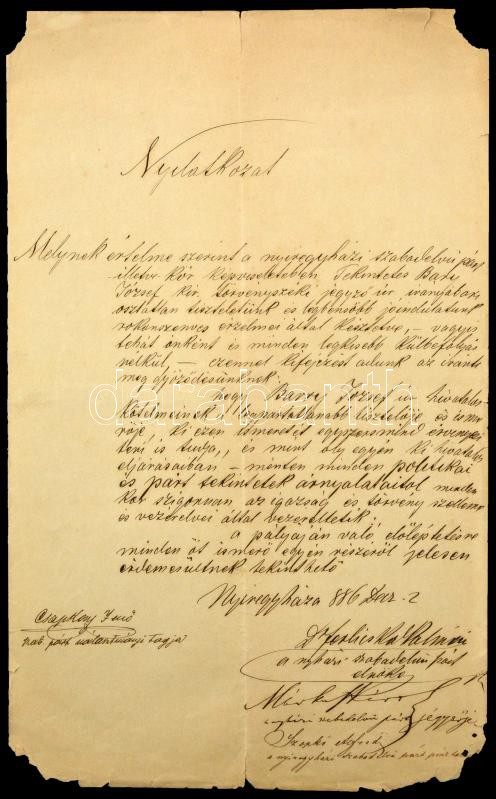 Nyilatkozat
Melynek értelme szerint a nyíregyházi szabadelvű párt
illetve kör képviseletében Tekintetes
József kir. törvényszéki jegyző úr irányában
osztatlan tiszteletünk és legbensőbb jóindulatunk
rokonszenves érzelmei által késztetve, – vagyis
tehát önként és minden legkisebb külbefolyás
nélkül, – ezennel kifejezést adunk az iránti
meg győződésünknek:
hogy József úr hivatalos
kötelmeinek tisztelője és isme
rője ki ezen ismeretét egyszersmind érvényesí
teni is tudja, és mint oly egyén ki hivatalos
eljárásaiban – menten minden politikai
és párt tekintetek árnyalataitól minden
kor szigorúan az igazság és törvény szelleme
és vezérelvei által vezéreltetik;
a pályáján való előléptetésre
minden őt ismerő egyén részéről jelesen
érdemesültnek tekinthető
Nyíregyháza 886 2
Csapkay Jenő
szab. párt választmányi tagja
a nyházi szabadelvű párt
elnöke
a nyházi szabadelvű párt jegyzője
Szopkó Alfréd
a nyíregyházi szabadelvű párt
darabanth